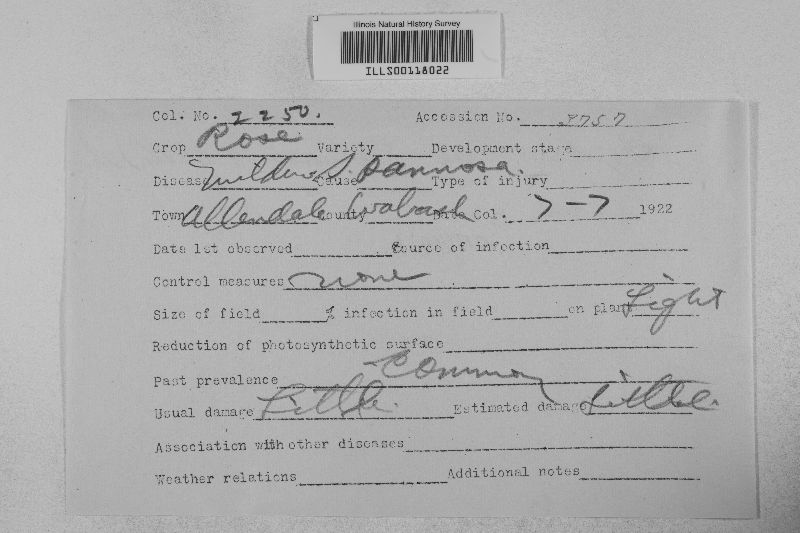 Illinois Natural History Survey
ILLS00118022
Col. No. 2250. Accession No. 8757
Crop Rose Variety Development stage
Disease Mildew Cause S. pannosa. Type of injury
Town Allendale County Wabash Date Col. 7-7 1922
Data 1st observed Source of infection
Control measures none
Size of field % infection in field on plant Light
Reduction of photosynthetic surface
Past prevalence Common
Usual damage Little. Estimated damage Little.
Association with other diseases
Weather relations Additional notes